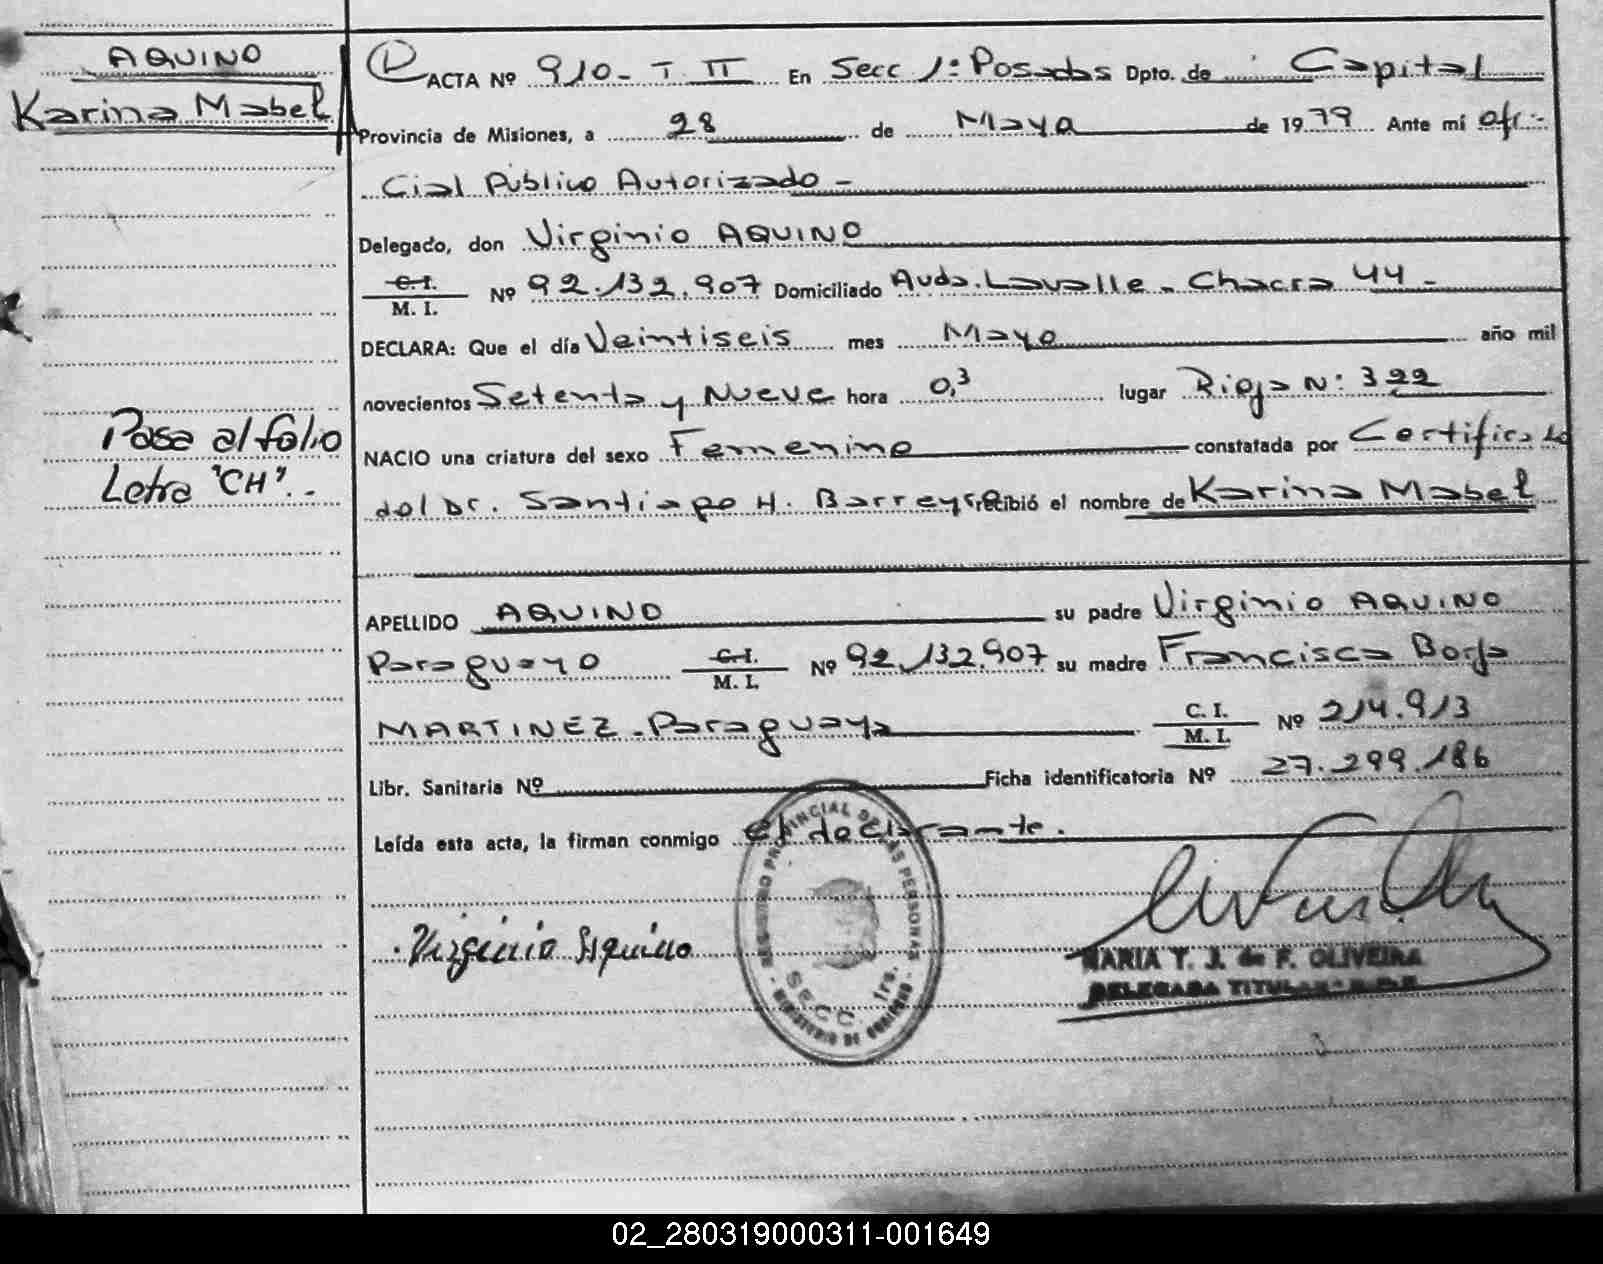 AQUINO
Karina Mabel
Pasa al folio
Letra "CH".-
ACTA Nº 910- T II En Secc 1ª Posadas Dpto. de Capital
Provincia de Misiones, a 28 de Mayo de 1979 Ante mí ofi-
cial Público Autorizado -
Delegado, don Virginio AQUINO
C.I. M. I. Nº 92.132.907 Domiciliado Avda. Lavalle - Chacra 44 -
DECLARA: Que el día Veintiseis mes Mayo año mil
novecientos Setenta y Nueve hora 0,3 lugar Rioja Nº 322
NACIO una criatura del sexo Femenino constatada por Certificado
del Dr. Santiago H. Barreyro recibió el nombre de Karina Mabel
APELLIDO AQUINO su padre Virginio AQUINO
Paraguayo C.I. M. I. Nº 92.132.907 su madre Francisca Borja
MARTINEZ - Paraguaya C. I. M. I. Nº 214.913
Libr. Sanitaria Nº Ficha identificatoria Nº 27.299.186
Leída esta acta, la firman conmigo el declarante.
REGISTRO PROVINCIAL DE LAS PERSONAS
SECC. 1ra.
MINISTERIO DE GOBIERNO
Virginio Aquino
MARIA T. J. de F. OLIVEIRA
DELEGADA TITULAR
02_280319000311-001649